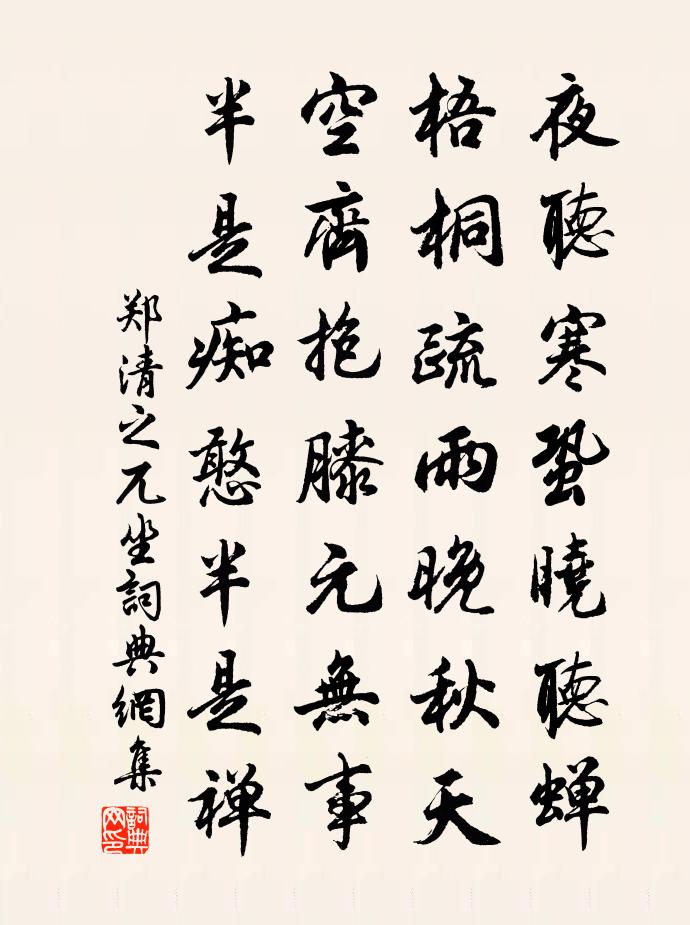 夜聽寒蛩曉聽蝉
梧桐疏雨晚秋天
空齋抱膝元無事
半是痴憨半是禅
郑清之兀坐詞典網集
詞典网印